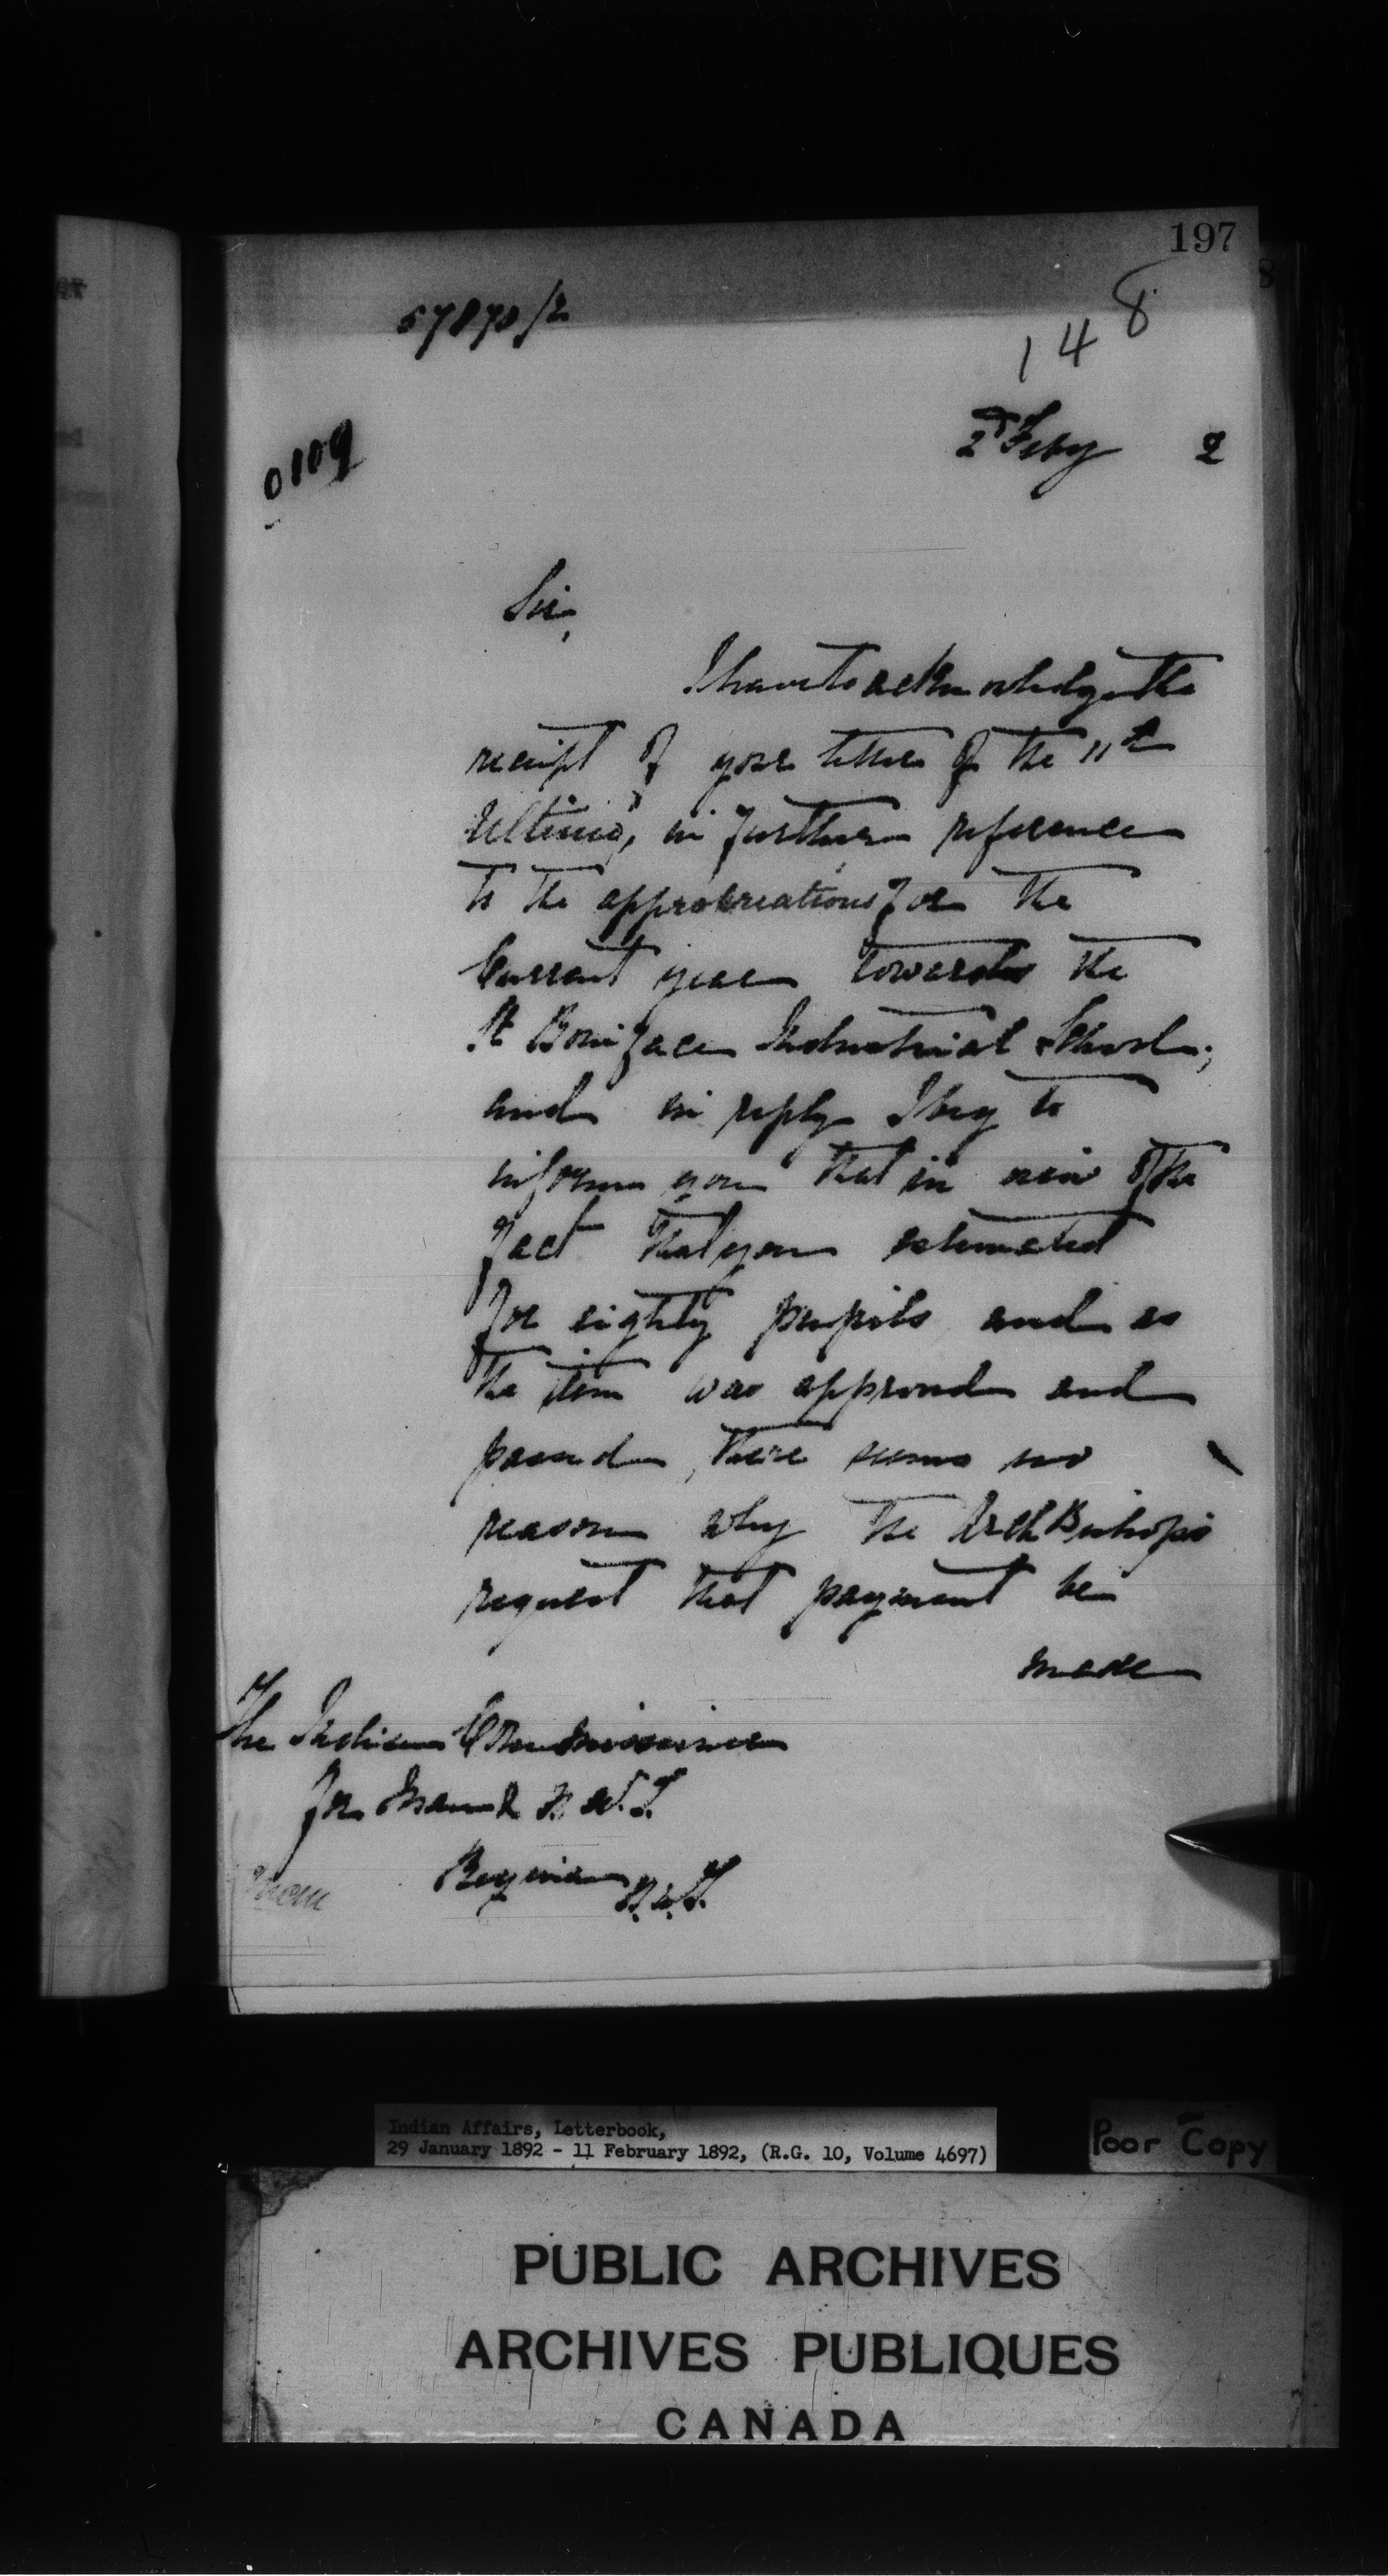 197
57870/2
148
2d Feby 2
Sir,
I have to acknowledge the
receipt of your letter of the 11th
Ultimo, in further reference
to the appropriations for the
Current year towards the
St Boniface Industrial School;
and in reply I beg to
inform you that in view of the
fact that you estimated
for eighty pupils and as
the item was approved and
passed, there seems no
reason why the Arch Bishop's
request that payment be
made
The Indian Commissioner
for Man & N.W.T.
Regina N.W.T.
Indian Affairs, Letterbook,
29 January 1892 - 11 February 1892, (R.G. 10, Volume 4697)
Poor Copy
PUBLIC ARCHIVES
ARCHIVES PUBLIQUES
CANADA